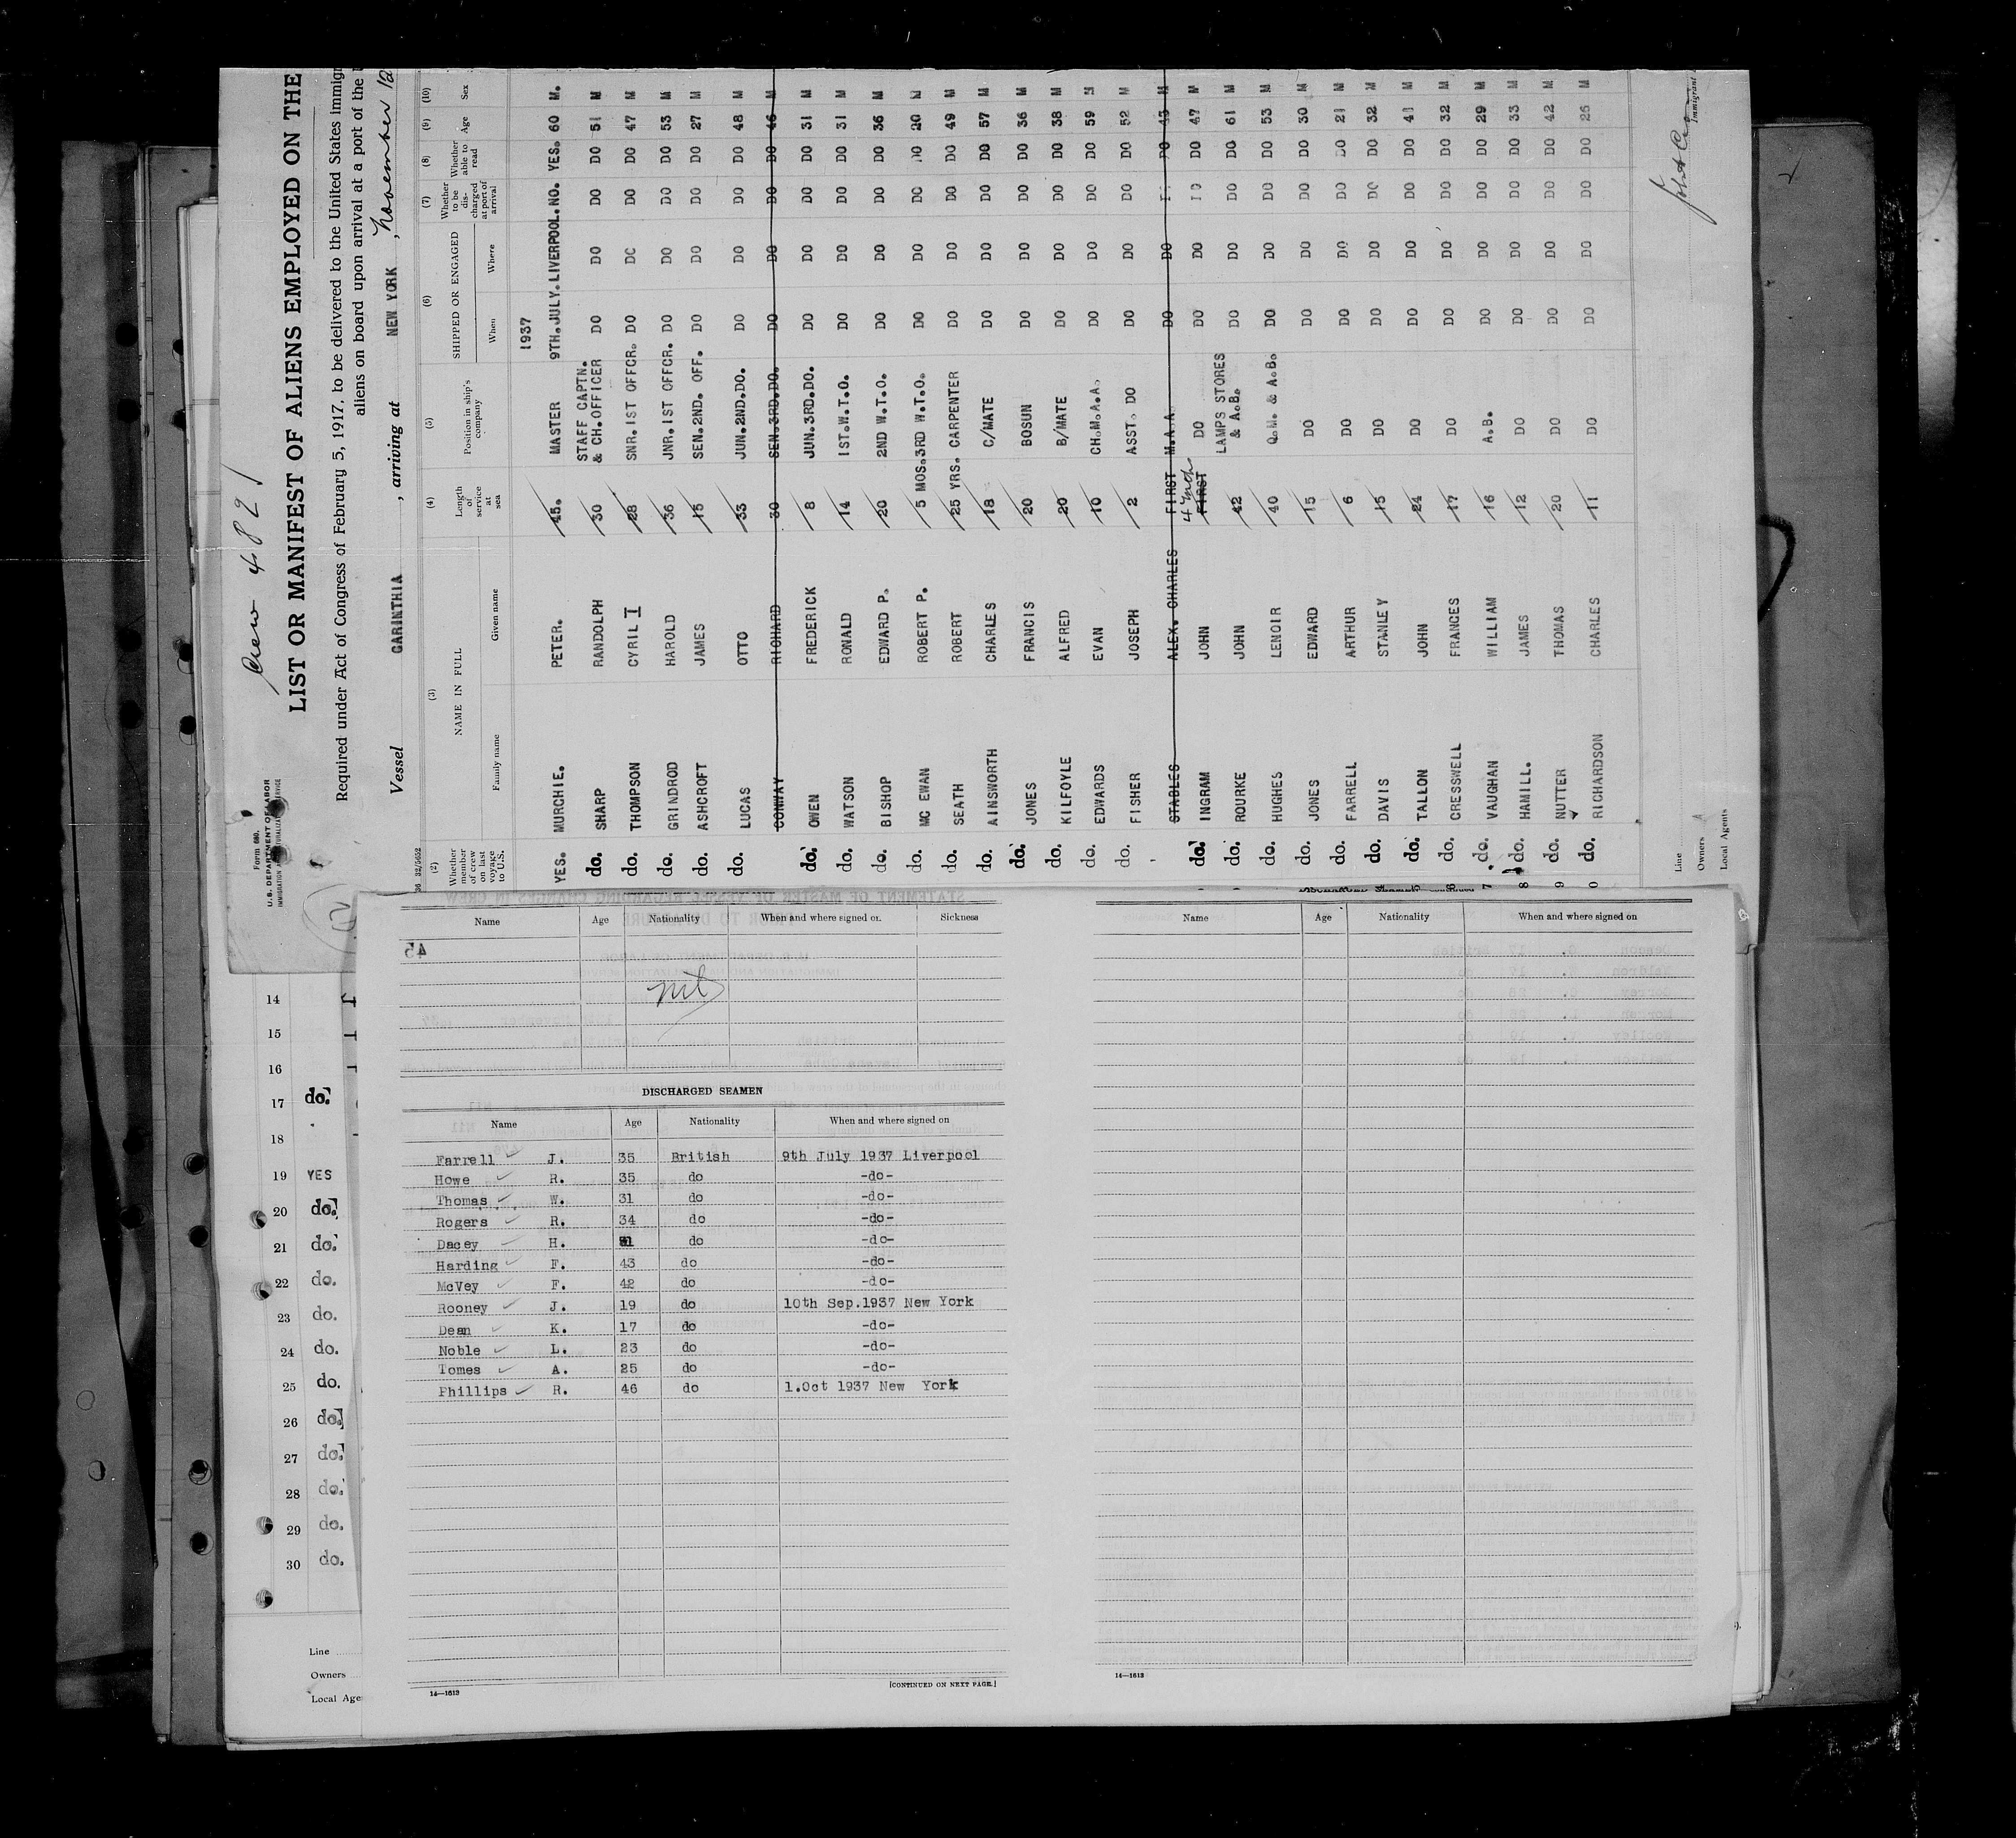 Crew 4821
Form 680.
U.S. DEPARTMENT OF LABOR
LIST OR MANIFEST OF ALIENS EMPLOYED ON THE
Required under Act of Congress of February 5, 1917, to be delivered to the United States immigr
aliens on board upon arrival at a port of the
Vessel CARINTHIA , arriving at NEW YORK , November 12
(2) (3) (4) (5) (6) (7) (8) (9) (10)
Whether member of crew on last voyage to U.S. NAME IN FULL Family name Given name Length of service at sea Position in ship's company SHIPPED OR ENGAGED When Where Whether to be discharged at port of arrival Whether able to read Age Sex
1937
YES. MURCHIE. PETER. 45. MASTER 9TH.JULY. LIVERPOOL. NO. YES. 60 M.
do. SHARP RANDOLPH 30 STAFF CAPTN. & CH.OFFICER DO DO DO DO 51 M
do. THOMPSON CYRIL I 28 SNR.1ST OFFCR. DO DO DO DO 47 M
do. GRINDROD HAROLD 36 JNR.1ST OFFCR. DO DO DO DO 53 M
do. ASHCROFT JAMES 15 SEN.2ND. OFF. DO DO DO DO 27 M
do. LUCAS OTTO 33 JUN.2ND.DO. DO DO DO DO 48 M
CONWAY RICHARD 30 SEN.3RD.DO. DO DO DO DO 46 M
do. OWEN FREDERICK 8 JUN.3RD.DO. DO DO DO DO 31 M
do. WATSON RONALD 14 1ST.W.T.O. DO DO DO DO 31 M
do. BISHOP EDWARD P. 20 2ND W.T.O. DO DO DO DO 36 M
do. MC EWAN ROBERT P. 5 MOS. 3RD W.T.O. DO DO DO DO 20 M
do. SEATH ROBERT 25 YRS. CARPENTER DO DO DO DO 49 M
do. AINSWORTH CHARLES 18 C/MATE DO DO DO DO 57 M
do. JONES FRANCIS 20 BOSUN DO DO DO DO 36 M
do. KILFOYLE ALFRED 20 B/MATE DO DO DO DO 38 M
do. EDWARDS EVAN 10 CH.M.A.A. DO DO DO DO 59 M
do. FISHER JOSEPH 2 ASST. DO DO DO DO DO 52 M
STABLES ALEX. CHARLES FIRST M.A.A. DO DO DO 43 M
do. INGRAM JOHN FIRST DO DO DO DO DO 47 M
do. ROURKE JOHN 42 LAMPS STORES & A.B. DO DO DO DO 61 M
do. HUGHES LENOIR 40 Q.M. & A.B. DO DO DO DO 53 M
do. JONES EDWARD 15 DO DO DO DO DO 30 M
do. FARRELL ARTHUR 6 DO DO DO DO DO 21 M
do. DAVIS STANLEY 15 DO DO DO DO DO 32 M
do. TALLON JOHN 24 DO DO DO DO DO 41 M
do. CRESSWELL FRANCES 17 DO DO DO DO DO 32 M
do. VAUGHAN WILLIAM 16 A.B. DO DO DO DO 29 M
do. HAMILL. JAMES 12 DO DO DO DO DO 33 M
do. NUTTER THOMAS 20 DO DO DO DO DO 42 M
do. RICHARDSON CHARLES 11 DO DO DO DO DO 25 M
Line
Owners
Local Agents
Name Age Nationality When and where signed on Sickness
45
nil
DISCHARGED SEAMEN
Name Age Nationality When and where signed on
Farrell J. 35 British 9th July 1937 Liverpool
Howe R. 35 do -do-
Thomas W. 31 do -do-
Rogers R. 34 do -do-
Dacey H. do -do-
Harding F. 43 do -do-
McVey F. 42 do -do-
Rooney J. 19 do 10th Sep.1937 New York
Dean K. 17 do -do-
Noble L. 23 do -do-
Tomes A. 25 do -do-
Phillips R. 46 do 1.Oct 1937 New York
14—1613 [CONTINUED ON NEXT PAGE.]
Name Age Nationality When and where signed on
14—1613
14
15
16
17 do.
18
19 YES
20 do.
21 do.
22 do.
23 do.
24 do.
25 do.
26 do.
27 do.
28 do.
29 do.
30 do.
Line
Owners
Local Age